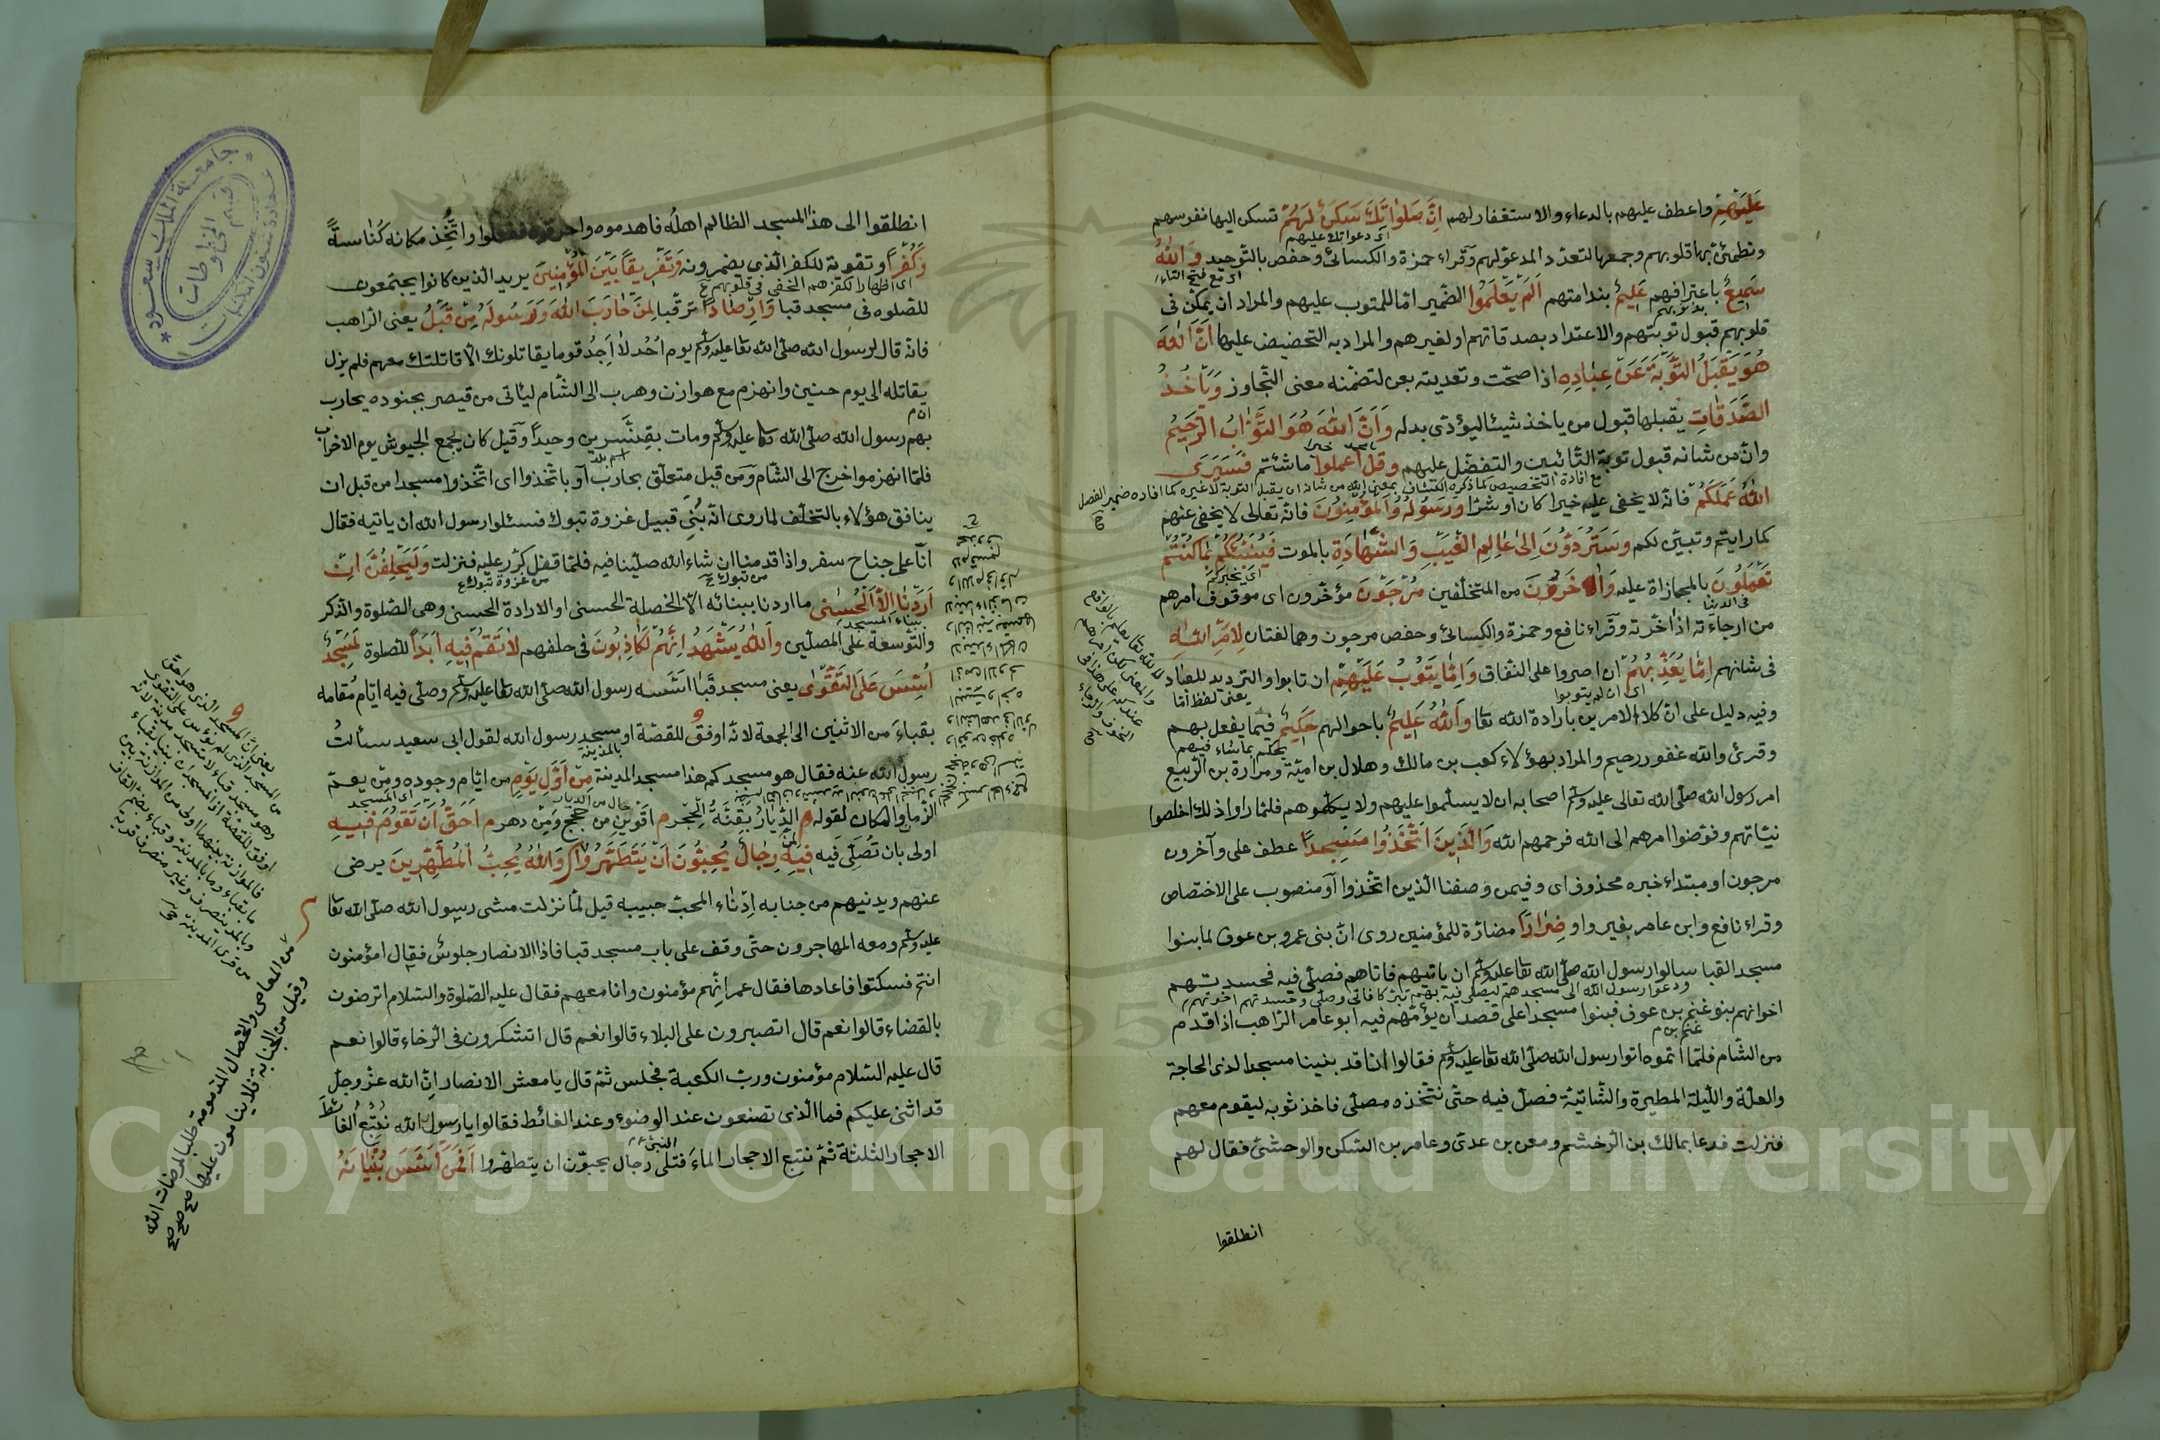 عَلَيْهِمْ واعطف عليهم بالدعاء والاستغفار لهم اِنَّ صَلوٰاتَكَ سَكَنٌ لَهُمْ تسكن اليها نفوسهم
وتطمئن بها قلوبهم وجمعها لتعدد المدعو لهم وقراء حمزة والكسائى وحفص بالتوحيد وَاللّٰهُ
سَمِيعٌ باعترافهم عَلِيمٌ بندامتهم اَلَمْ يَعْلَمُوا الضمير اما للمتوب عليهم والمراد ان يمكن فى
قلوبهم قبول توبتهم والاعتداد بصدقاتهم او لغيرهم والمراد به التحضيض عليها اَنَّ اللّٰهَ
هُوَ يَقْبَلُ التَّوْبَةَ عَنْ عِبٰادِهِ اذا صحت وتعديته بعن لتضمنه معنى التجاوز وَيَأْخُذُ
الصَّدَقٰاتِ يقبلها قبول من ياخذ شيئا ليؤدى بدله وَاَنَّ اللّٰهَ هُوَ التَّوّٰابُ الرَّحِيمُ
وان من شانه قبول توبة التائبين والتفضل عليهم وَقُلِ اعْمَلُوا ما شئتم فَسَيَرَى
اللّٰهُ عَمَلَكُمْ فانه لا يخفى عليه خيرا كان او شرا وَرَسُولُهُ وَالْمُؤْمِنُونَ فانه تعالى لا يخفى عنهم
كما رايتم وتبين لكم وَسَتُرَدُّونَ اِلىٰ عٰالِمِ الْغَيْبِ وَالشَّهٰادَةِ بالموت فَيُنَبِّئُكُمْ بِمٰا كُنْتُمْ
تَعْمَلُونَ بالمجازاة عليه وَاٰخَرُونَ من المتخلفين مُرْجَوْنَ مؤخرون اى موقوف امرهم
من ارجاءته اذا اخرته وقراء نافع وحمزة والكسائى وحفص مرجون وهما لغتان لِاَمْرِ اللّٰهِ
فى شانهم اِمّٰا يُعَذِّبُهُمْ ان اصروا على النفاق وَاِمّٰا يَتُوبُ عَلَيْهِمْ ان تابوا والترديد للعباد
وفيه دليل على ان كلا الامرين بارادة الله تعا وَاللّٰهُ عَلِيمٌ باحوالهم حَكِيمٌ فيما يفعل بهم
وقرئ والله غفور رحيم والمراد بهؤلاء كعب بن مالك وهلال بن امية ومرارة بن الربيع
امر رسول الله صلى الله تعالى عليه وسلم اصحابه ان لا يسلموا عليهم ولا يكلموهم فلما راوا ذلك اخلصوا
نياتهم وفوضوا امرهم الى الله فرحمهم الله وَالَّذِينَ اتَّخَذُوا مَسْجِدًا عطف على وآخرون
مرجون او مبتداء خبره محذوف اى وفيمن وصفنا الذين اتخذوا او منصوب على الاختصاص
وقراء نافع وابن عامر بغير واو ضِرٰارًا مضارة للمؤمنين روى ان بنى عمرو بن عوف لما بنوا
مسجد القبا سالوا رسول الله صلى الله تعا عليه وسلم ان ياتيهم فاتاهم فصلى فيه فحسدتهم
اخوانهم بنو غنم بن عوف فبنوا مسجدا على قصد ان يؤمهم فيه ابو عامر الراهب اذا قدم
من الشام فلما اتموه اتوا رسول الله صلى الله تعا عليه وسلم فقالوا انا قد بنينا مسجدا لذى الحاجة
والعلة والليلة المطيرة والشاتية فصل فيه حتى نتخذه مصلى فاخذ ثوبه ليقوم معهم
فنزلت فدعا بمالك بن الدخشم ومعن بن عدى وعامر بن السكن والوحشى فقال لهم
انطلقوا
انطلقوا الى هذا المسجد الظالم اهله فاهدموه واحرقوه ففعلوا واتُّخِذ مكانه كُناسةً
وَكُفْرًا وتقوية للكفر الذي يضمرونه وَتَفْرِيقًا بَيْنَ الْمُؤْمِنِينَ يريد الذين كانوا يجتمعون
للصلوه فى مسجد قبا وَاِرْصٰادًا ترقبا لِمَنْ حٰارَبَ اللّٰهَ وَرَسُولَهُ مِنْ قَبْلُ يعنى الراهب
فانه قال لرسول الله صلى الله تعا عليه وسلم يوم اُحُد لا اَجِدُ قوما يقاتلونك الا قاتلتك معهم فلم يزل
يقاتله الى يوم حنين وانهزم مع هوازن وهرب الى الشام لياتى من قيصر بجنود يحارب
بهم رسول الله صلى الله تعا عليه وسلم ومات بقِنَّسرين وحيدًا وقيل كان يجمع الجيوش يوم الاحزاب
فلما انهزموا خرج الى الشام ومن قبل متعلق بحارب او باتخذوا اى اتخذوا مسجدا من قبل ان
ينافق هؤلاء بالتخلف لما روى انه بُنِى قبيل غزوة تبوك فسئلوا رسول الله ان ياتيه فقال
انا على جناح سفر واذا قدمنا ان شاء الله صلينا فيه فلما قفل كرر عليه فنزلت وَلَيَحْلِفُنَّ اِنْ
اَرَدْنٰا اِلَّا الْحُسْنىٰ ما اردنا ببنائه الا الخصلة الحسنى او الارادة الحسنى وهى الصلوة والذكر
والتوسعة على المصلين وَاللّٰهُ يَشْهَدُ اِنَّهُمْ لَكٰاذِبُونَ فى حلفهم لٰا تَقُمْ فِيهِ اَبَدًا للصلوة لَمَسْجِدٌ
اُسِّسَ عَلَى التَّقْوٰى يعنى مسجد قبا اسسه رسول الله صلى الله تعا عليه وسلم وصلى فيه ايام مُقامه
بقباء من الاثنين الى الجمعة لانه اوفق للقصة او مسجد رسول الله لقول ابى سعيد سالتُ
رسول الله عنه فقال هو مسجدكم هذا مسجد المدينة مِنْ اَوَّلِ يَوْمٍ من ايام وجوده ومِن يعم
الزمان والمكان لقوله لمن الدِّيارُ بِقُنَّةِ الْحِجْر اَقْوَيْنَ مِنْ حِجَجٍ وَمِنْ دهر اَحَقُّ اَنْ تَقُومَ فِيهِ
اولى بان تصلى فيه فِيهِ رِجٰالٌ يُحِبُّونَ اَنْ يَتَطَهَّرُوا وَاللّٰهُ يُحِبُّ الْمُطَّهِّرِينَ يرضى
عنهم ويدنيهم من جنابه اِدْناء المحب حبيبه قيل لما نزلت مشى رسول الله صلى الله تعا
عليه وسلم ومعه المهاجرون حتى وقف على باب مسجد قبا فاذا الانصار جلوس فقال امؤمنون
انتم فسكتوا فاعادها فقال عمر انهم مؤمنون وانا معهم فقال عليه الصلوة والسلام اترضون
بالقضاء قالوا نعم قال اتصبرون على البلاء قالوا نعم قال اتشكرون فى الرخاء قالوا نعم
قال عليه السلام مؤمنون ورب الكعبة فجلس ثم قال يا معشر الانصار ان الله عز وجل
قد اثنى عليكم فما الذى تصنعون عند الوضوء وعند الغائط فقالوا يا رسول الله نُتْبِعُ الغائط
الاحجار الثلثة ثم نتبع الاحجار الماء فتلى رجال يحبون ان يتطهروا اَفَمَنْ اَسَّسَ بُنْيٰانَهُ
من المعاصى والخصال المذمومة طلبا لمرضات الله
وقيل من الجنابة فلا ينامون عليها صح صح صح
جامعة الملك سعود
عمادة شؤون المكتبات
قسم المخطوطات
Copyright © King Saud University
195